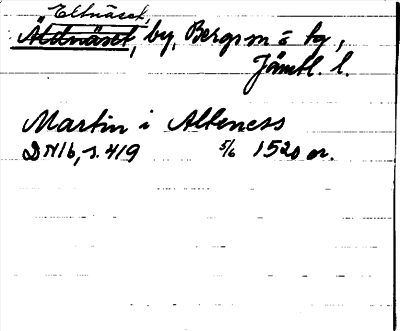 Eltnäset,
Äldnäset, by, Bergs sn o tg,
Jämtl. l.
Martin i Alteness
DN 16, s. 419 5/6 1520 or.